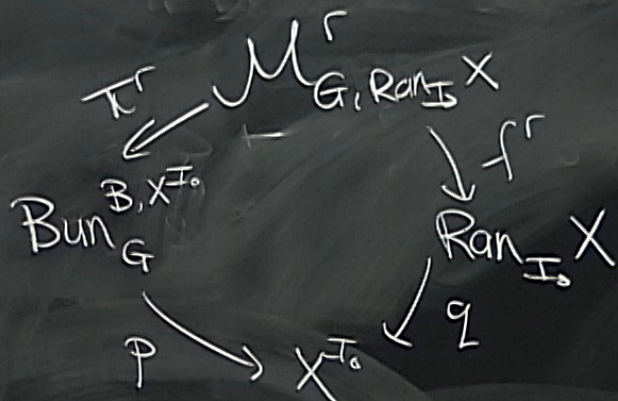 M^r_{G, Ran_{I_0} X}
π^r f^r
Bun_G^{B, X^{I_0}} Ran_{I_0} X
p X^{I_0} q